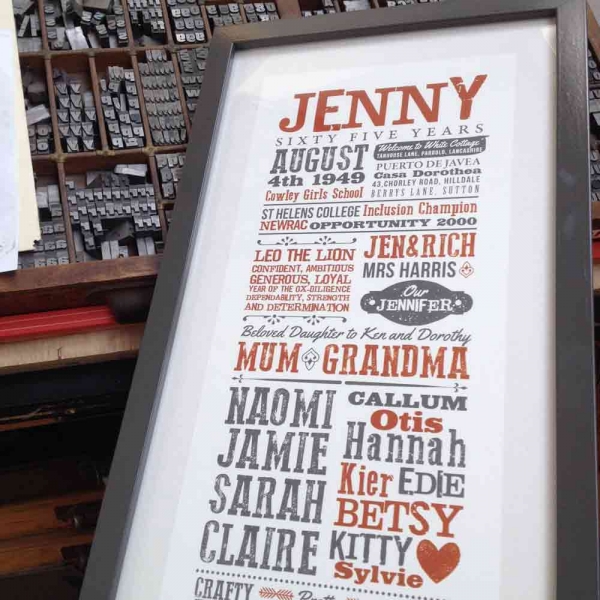 JENNY
SIXTY FIVE YEARS
AUGUST
4th 1949
Cowley Girls School
Welcome to White Cottage
TANHOUSE LANE, PARBOLD, LANCASHIRE
PUERTO DE JAVEA
Casa Dorothea
43, CHORLEY ROAD, HILLDALE
BERRYS LANE, SUTTON
ST HELENS COLLEGE Inclusion Champion
NEWRAC OPPORTUNITY 2000
LEO THE LION
CONFIDENT, AMBITIOUS
GENEROUS, LOYAL
YEAR OF THE OX-DILIGENCE
DEPENDABILITY, STRENGTH
AND DETERMINATION
JEN&RICH
MRS HARRIS
Our
JENNIFER
Beloved Daughter to Ken and Dorothy
MUM GRANDMA
NAOMI
JAMIE
SARAH
CLAIRE
CALLUM
Otis
Hannah
Kier EDIE
BETSY
KITTY
Sylvie
CRAFTY